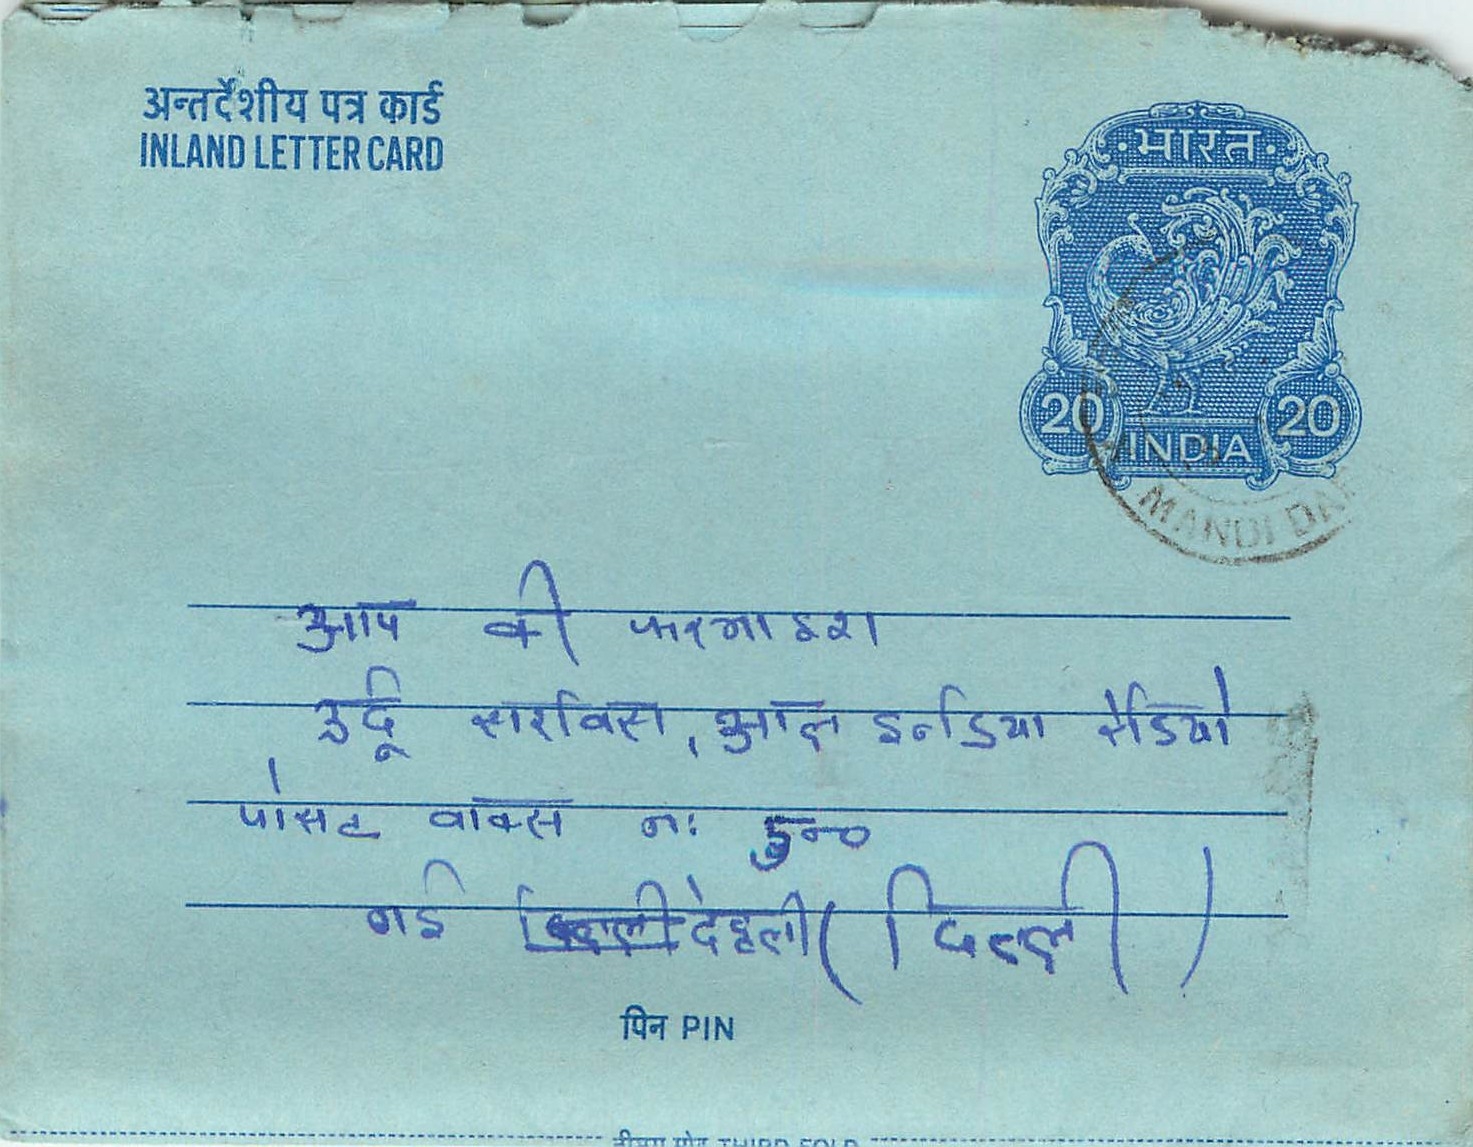 अन्तर्देशीय पत्र कार्ड
INLAND LETTER CARD
भारत
20 20
INDIA
MANDI DA
आप की फरमाइश
उर्दू सरविस, आल इन्डिया रेडियो
पोसट वाक्स नः
नई देहली ( दिल्ली )
पिन PIN
THIRD FOLD